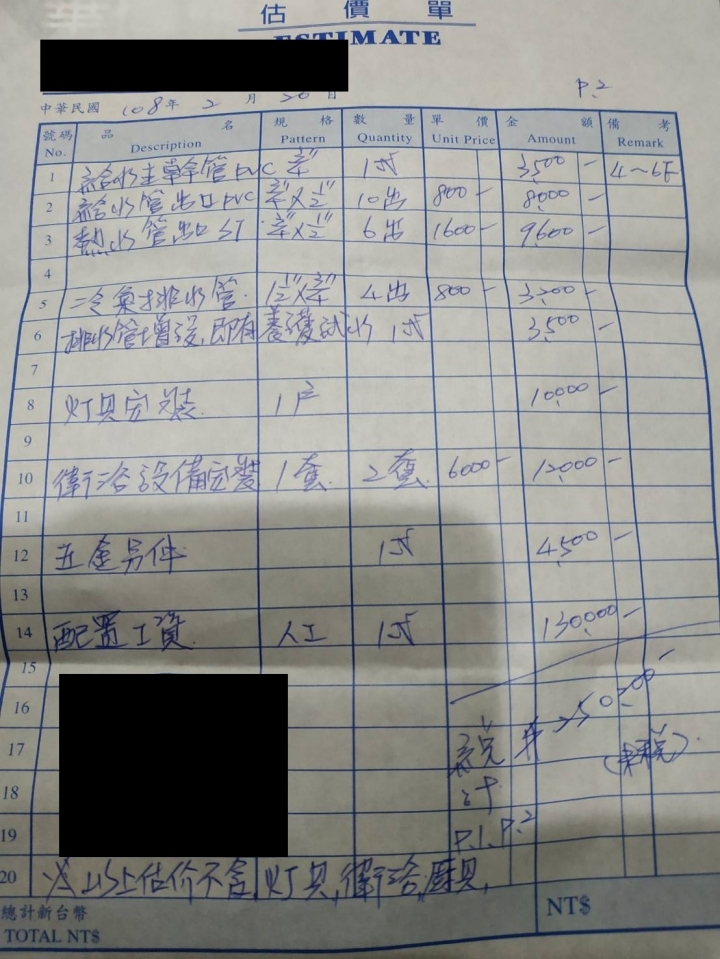 估價單
ESTIMATE
P.2
中華民國 108年 2月 26日
號碼 No. 品名 Description 規格 Pattern 數量 Quantity 單價 Unit Price 金額 Amount 備考 Remark
1 給水主幹管PVC 1式 3,500- 4~6F
2 給水管出口PVC 10出 800- 8,000-
3 熱水管出口ST 6出 1600- 9,600-
4
5 冷氣排水管 4出 800- 3,200-
6 排水管增設,即有養護試水 1式 3,500-
7
8 灯具安裝 1戶 10,000-
9
10 衛浴設備安裝 1套 2套 6000- 12,000-
11
12 五金另件 1式 4,500-
13
14 配置工資 人工 1式 130,000-
15
16
17 (未稅)
18 計
19 P.1.P.2
20 ※以上估价不含,灯具,衛浴,廚具,
總計新台幣
TOTAL NT$ NT$